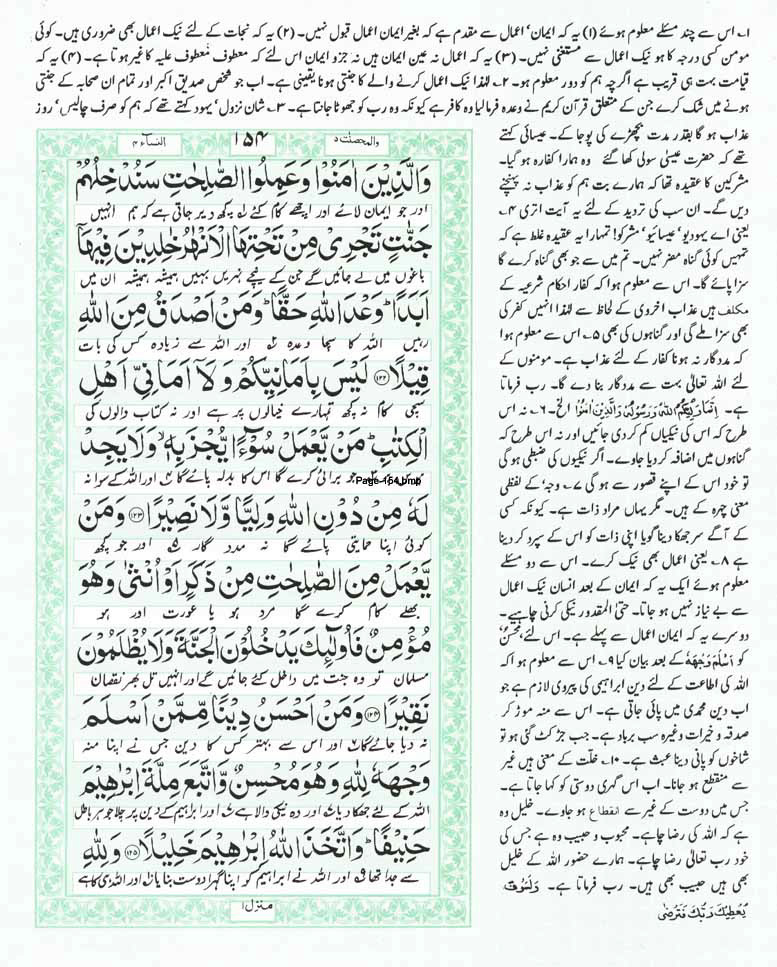 ۱۔ اس سے چند مسئلے معلوم ہوئے (۱) یہ کہ ایمان' اعمال سے مقدم ہے کہ بغیر ایمان اعمال قبول نہیں۔ (۲) یہ کہ نجات کے لئے نیک اعمال بھی ضروری ہیں۔ کوئی
مومن کسی درجہ کا ہو نیک اعمال سے مستغنی نہیں۔ (۳) یہ کہ اعمال نہ عین ایمان ہیں نہ جزو ایمان اس لئے کہ معطوف' معطوف علیہ کا غیر ہوتا ہے۔ (۴) یہ کہ
قیامت بہت ہی قریب ہے اگرچہ ہم کو دور معلوم ہو۔ ۲۔ لہٰذا نیک اعمال کرنے والے کا جنتی ہونا یقینی ہے۔ اب جو شخص صدیق اکبر اور تمام ان صحابہ کے جنتی
ہونے میں شک کرے جن کے متعلق قرآن کریم نے وعدہ فرمالیا وہ کافر ہے کیونکہ وہ رب کو جھوٹا جانتا ہے۔ ۳۔ شان نزول' یہود کہتے تھے کہ ہم کو صرف چالیس' روز
عذاب ہو گا بقدر مدت بچھڑے کی پوجا کے۔ عیسائی کہتے
تھے کہ حضرت عیسیٰ سولی کھا گئے وہ ہمارا کفارہ ہو گیا۔
مشرکین کا عقیدہ تھا کہ ہمارے بت ہم کو عذاب نہ پہنچنے
دیں گے۔ ان سب کی تردید کے لئے یہ آیت اتری ۴۔
یعنی اے یہودیو' عیسائیو' مشرکو! تمہارا یہ عقیدہ غلط ہے کہ
تمہیں کوئی گناہ مضر نہیں۔ تم میں سے جو بھی گناہ کرے گا
سزا پائے گا۔ اس سے معلوم ہوا کہ کفار احکام شرعیہ کے
مکلف ہیں عذاب اخروی کے لحاظ سے لہٰذا انہیں کفر کی
بھی سزا ملے گی اور گناہوں کی بھی ۵۔ اس سے معلوم ہوا
کہ مددگار نہ ہونا کفار کے لئے عذاب ہے۔ مومنوں کے
لئے اللہ تعالیٰ بہت سے مددگار بنا دے گا۔ رب فرماتا
ہے۔ اِنَّمَا وَلِيُّكُمُ اللّٰهُ وَرَسُوْلُهٗ وَالَّذِيْنَ اٰمَنُوْا الخ۔ ۶۔ نہ اس
طرح کہ اس کی نیکیاں کم کر دی جائیں اور نہ اس طرح کہ
گناہوں میں اضافہ کر دیا جاوے۔ اگر نیکیوں کی ضبطی ہو گی
تو خود اس کے اپنے قصور سے ہو گی ۷۔ وجہ' کے لفظی
معنی چہرہ کے ہیں۔ مگر یہاں مراد ذات ہے۔ کیونکہ کسی
کے آگے سر جھکا دینا گویا اپنی ذات کو اس کے سپرد کر دینا
ہے ۸۔ یعنی اعمال بھی نیک کرے۔ اس سے دو مسئلے
معلوم ہوئے ایک یہ کہ ایمان کے بعد انسان نیک اعمال
سے بے نیاز نہیں ہو جاتا۔ حتی المقدور نیکی کرنی چاہیے۔
دوسرے یہ کہ ایمان اعمال سے پہلے ہے۔ اس لئے محسن'
کو اَسْلَمَ وَجْهَهٗ کے بعد بیان کیا ۹۔ اس سے معلوم ہوا کہ
اللہ کی اطاعت کے لئے دین ابراہیمی کی پیروی لازم ہے جو
اب دین محمدی میں پائی جاتی ہے۔ اس سے منہ موڑ کر
صدقہ و خیرات وغیرہ سب برباد ہے۔ جب جڑ کٹ گئی ہو تو
شاخوں کو پانی دینا عبث ہے۔ ۱۰۔ خلّت کے معنی ہیں غیر
سے منقطع ہو جانا۔ اب اس گہری دوستی کو کہا جاتا ہے۔
جس میں دوست کے غیر سے انقطاع ہو جاوے۔ خلیل وہ
ہے کہ اللہ کی رضا چاہے۔ محبوب و حبیب وہ ہے جس کی
خود رب تعالیٰ رضا چاہے۔ ہمارے حضور اللہ کے خلیل
بھی ہیں حبیب بھی ہیں۔ رب فرماتا ہے۔ وَلَسَوْفَ
يُعْطِيْكَ رَبُّكَ فَتَرْضٰى
والمحصنٰت ۵ ۱۵۴ النساء ۴
وَالَّذِيْنَ اٰمَنُوْا وَعَمِلُوا الصّٰلِحٰتِ سَنُدْخِلُهُمْ
اور جو ایمان لائے اور اچھے کام کئے ۱؎ کچھ دیر جاتی ہے کہ ہم انہیں
جَنّٰتٍ تَجْرِيْ مِنْ تَحْتِهَا الْاَنْهٰرُ خٰلِدِيْنَ فِيْهَا
باغوں میں لے جائیں گے جن کے نیچے نہریں بہیں ہمیشہ ہمیشہ ان میں
اَبَدًا ؕ وَعْدَ اللّٰهِ حَقًّا ؕ وَمَنْ اَصْدَقُ مِنَ اللّٰهِ
رہیں اللہ کا سچا وعدہ ۲؎ اور اللہ سے زیادہ کس کی بات
قِيْلًا ﴿۱۲۲﴾ لَيْسَ بِاَمَانِيِّكُمْ وَلَاۤ اَمَانِيِّ اَهْلِ
سچی کام نہ کچھ تمہارے خیالوں پر ہے اور نہ کتاب والوں کی
الْكِتٰبِ ؕ مَنْ يَّعْمَلْ سُوْٓءًا يُّجْزَ بِهٖ ۙ وَلَا يَجِدْ
جو برائی کرے گا اس کا بدلہ پائے گا ۴؎ اور اللہ کے سوا نہ
Page-164.bmp
لَهٗ مِنْ دُوْنِ اللّٰهِ وَلِيًّا وَّلَا نَصِيْرًا ﴿۱۲۳﴾ وَمَنْ
کوئی اپنا حمایتی پائے گا نہ مددگار ۵؎ اور جو کچھ
يَّعْمَلْ مِنَ الصّٰلِحٰتِ مِنْ ذَكَرٍ اَوْ اُنْثٰى وَهُوَ
بھلے کام کرے گا مرد ہو یا عورت اور ہو
مُؤْمِنٌ فَاُولٰٓئِكَ يَدْخُلُوْنَ الْجَنَّةَ وَلَا يُظْلَمُوْنَ
مسلمان تو وہ جنت میں داخل کئے جائیں گے اور انہیں تل بھر نقصان
نَقِيْرًا ﴿۱۲۴﴾ وَمَنْ اَحْسَنُ دِيْنًا مِّمَّنْ اَسْلَمَ
نہ دیا جائے گا ۶؎ اور اس سے بہتر کس کا دین جس نے اپنا منہ
وَجْهَهٗ لِلّٰهِ وَهُوَ مُحْسِنٌ وَّاتَّبَعَ مِلَّةَ اِبْرٰهِيْمَ
اللہ کے لئے جھکا دیا ۷؎ اور وہ نیکی والا ہے ۸؎ اور ابراہیم کے دین پر چلا جو ہر باطل
حَنِيْفًا ؕ وَاتَّخَذَ اللّٰهُ اِبْرٰهِيْمَ خَلِيْلًا ﴿۱۲۵﴾ وَلِلّٰهِ
سے جدا تھا ۹؎ اور اللہ نے ابراہیم کو اپنا گہرا دوست بنایا ۱۰؎ اور اللہ ہی کا ہے
منزل ۱